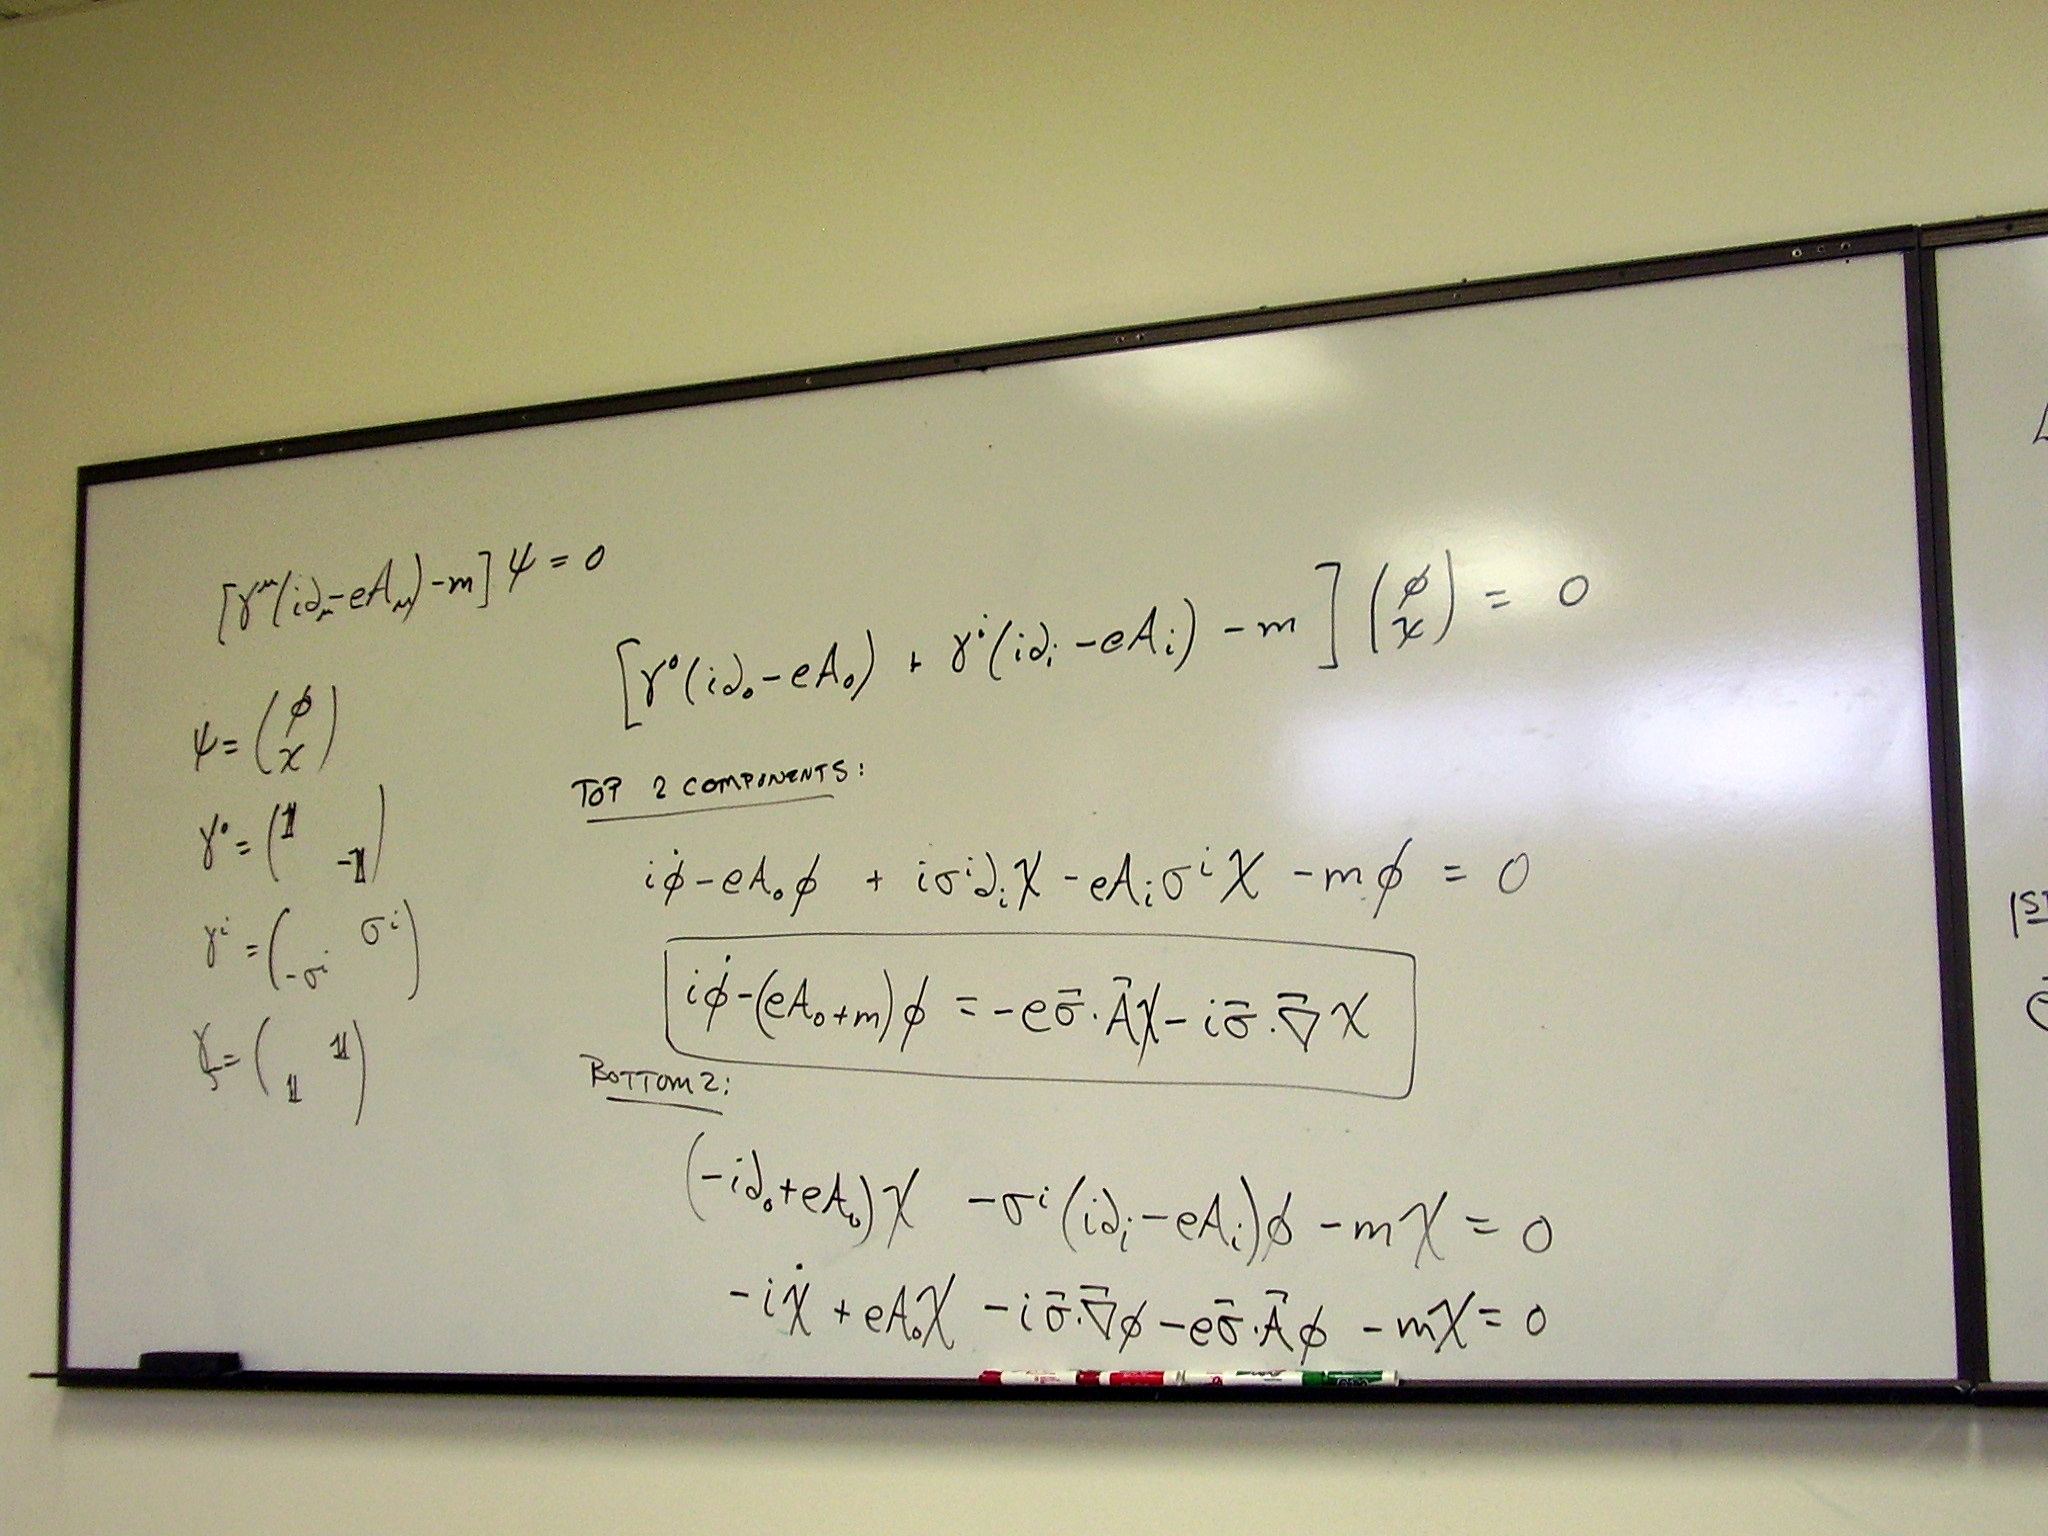 [γ^μ(i∂_μ-eA_μ)-m]ψ=0
ψ=(φ χ)
γ^0=(𝟙 -𝟙)
γ^i=(σ^i -σ^i)
γ_5=(𝟙 𝟙)
[γ^0(i∂_0-eA_0) + γ^i(i∂_i-eA_i) -m](φ χ) = 0
TOP 2 COMPONENTS:
iφ̇-eA_0φ + iσ^i∂_iχ -eA_iσ^iχ -mφ = 0
iφ̇-(eA_0+m)φ = -eσ⃗·A⃗χ-iσ⃗·∇⃗χ
BOTTOM 2:
(-i∂_0+eA_0)χ -σ^i(i∂_i-eA_i)φ -mχ = 0
-iχ̇ +eA_0χ -iσ⃗·∇⃗φ-eσ⃗·A⃗φ -mχ=0